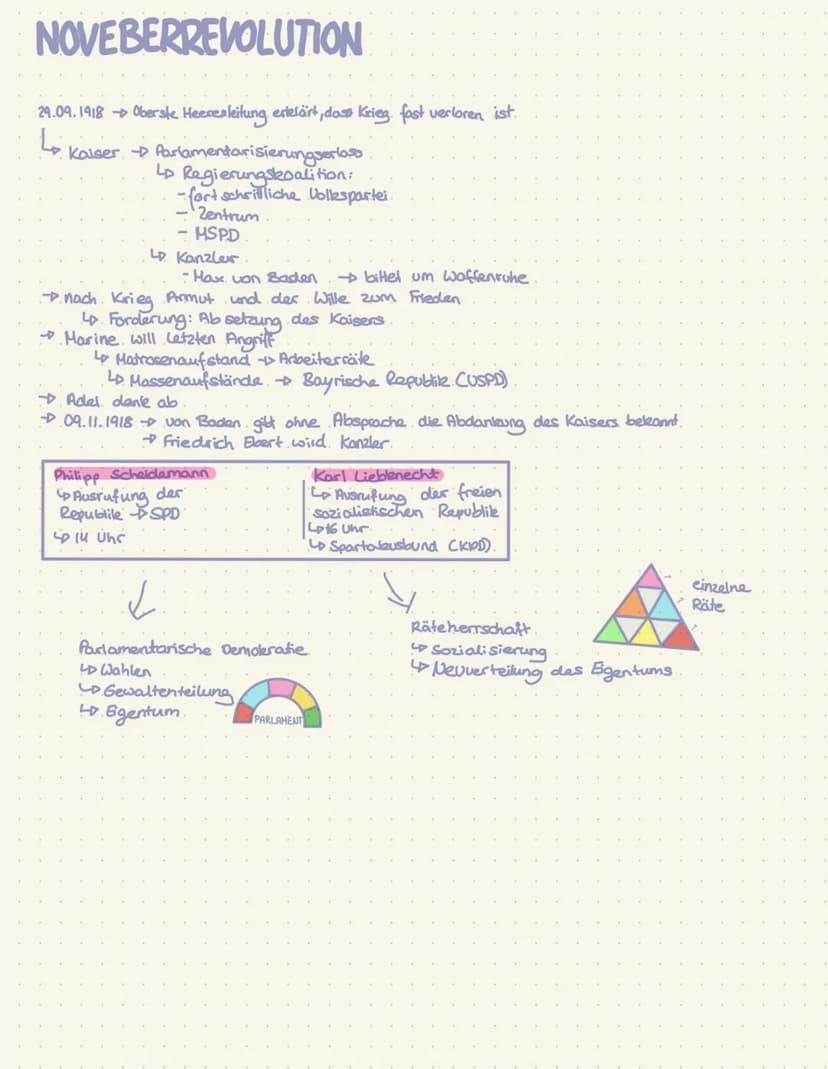 NOVEBERREVOLUTION
29.09.1918 → Oberste Heeresleitung erklärt, dass Krieg fast verloren ist
↳ Kaiser → Parlamentarisierungserlass
↳ Regierungskoalition:
- fortschrittliche Volkspartei
- Zentrum
- MSPD
↳ Kanzler
- Max von Baden → bittet um Waffenruhe
→ nach Krieg Armut und der Wille zum Frieden
↳ Forderung: Absetzung des Kaisers
→ Marine will letzten Angriff
↳ Matrosenaufstand → Arbeiterräte
↳ Massenaufstände → Bayrische Republik (USPD)
→ Adel dankt ab
→ 09.11.1918 → von Baden gibt ohne Absprache die Abdankung des Kaisers bekannt
→ Friedrich Ebert wird Kanzler
Philipp Scheidemann
↳ Ausrufung der
Republik → SPD
↳ 14 Uhr
Karl Liebknecht
↳ Ausrufung der freien
sozialistischen Republik
↳ 16 Uhr
↳ Spartakusbund (KPD)
Parlamentarische Demokratie
↳ Wahlen
↳ Gewaltenteilung
↳ Egentum
PARLAMENT
Räteherrschaft
↳ Sozialisierung
↳ Neuverteilung des Eigentums
einzelne
Räte